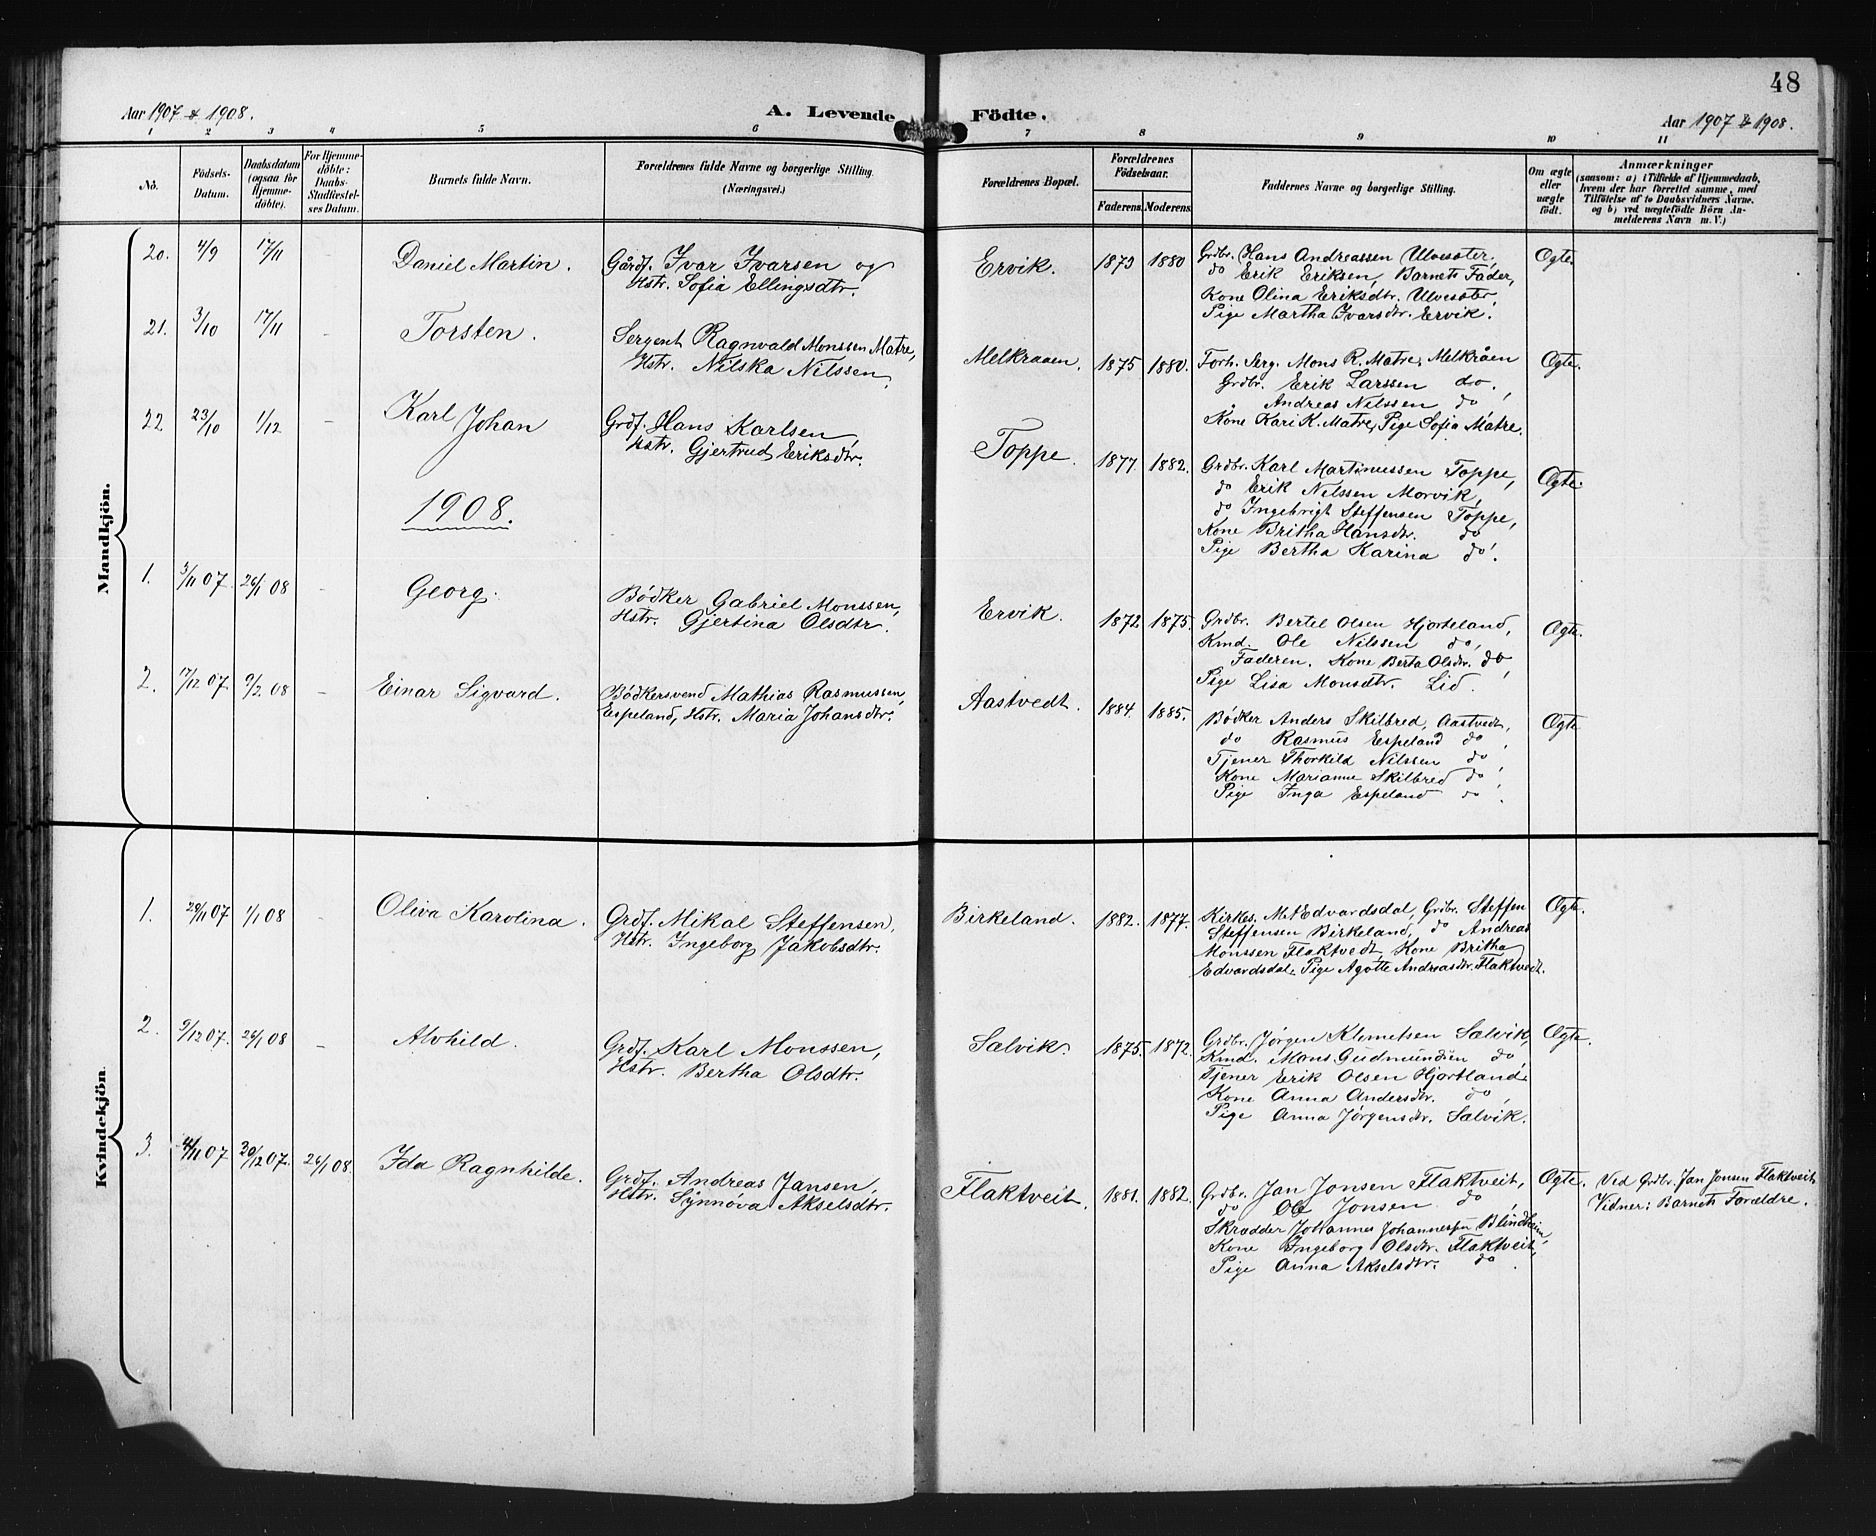 48
Aar 1907 & 1908.
A. Levende Födte.
Aar 1907 & 1908.
1 2 3 4 5 6 7 8 9 10 11
No.
Födsels-
Datum.
Daabsdatum
(ogsaa for
Hjemme-
döbte).
For Hjemme-
döbte:
Daabs-
Stadfæstel-
ses Datum.
Barnets fulde Navn.
Forældrenes fulde Navne og borgerlige Stilling
(Næringsvei.)
Forældrenes Bopæl.
Forældrenes
Födselsaar.
Faderens. Moderens.
Faddernes Navne og borgerlige Stilling.
Om ægte
eller
uægte
födt.
Anmærkninger
(saasom: a) i Tilfælde af Hjemmedaab,
hvem der har forrettet samme, med
Tilföielse af to Daabsvidners Navne,
og b) ved uægtefödte Börn An-
melderens Navn m. V.)
Mandkjön.
20. 4/9 17/11 Daniel Martin.
Gårdf. Ivar Ivarsen og
Hstr. Sofia Ellingsdtr.
Ervik. 1873 1880
Grdbr. Hans Andreassen Ulvesæter,
do Erik Eriksen, Barnets Fader,
Kone Olina Eriksdtr. Ulvesæter,
Pige Martha Ivarsdtr. Ervik.
Ægte.
21. 3/10 17/11 - Torsten.
Sergent Ragnvald Monssen Matre,
Hstr. Nilska Nilssen.
Melkraaen 1875 1880.
Forh. Serg. Mons R. Matre, Melkråen
Grdbr. Erik Larssen do,
Andreas Nilssen do,
Kone Kari K. Matre, Pige Sofia Matre.
Ægte.
22 23/10 1/12 - Karl Johan
Grdf. Hans Karlsen,
Hstr. Gjertrud Eriksdtr.
Toppe. 1877. 1882.
Grdbr. Karl Martinussen Toppe,
do Erik Nilssen Morvik,
do Ingebrigt Steffensen Toppe,
Kone Britha Hansdtr. do
Pige Bertha Karina do.
Ægte.
1908.
1. 3/11 07 26/1 08 - Georg.
Bödker Gabriel Monssen,
Hstr. Gjertina Olsdtr.
Ervik. 1872 1875.
Grdbr. Bertel Olsen Hjorteland,
Kmd. Ole Nilssen do,
Faderen. Kone Berta Olsdtr. do,
Pige Lisa Monsdtr. Lid.
Ægte.
2. 17/12 07 9/2 08 - Einar Sigvard.
Bödkersvend Mathias Rasmussen,
Espeland, Hstr. Maria Johansdtr.
Aastvedt. 1884. 1885.
Bödker Anders Skilbred, Aastvedt,
do Rasmus Espeland do,
Tjener Thorkild Nilssen do,
Kone Marianne Skilbred do,
Pige Inga Espeland do.
Ægte
Kvindekjön.
1. 28/11 07 1/1 08 - Oliva Karolina.
Grdf. Mikal Steffensen,
Hstr. Ingeborg Jakobsdtr.
Birkeland. 1882. 1877.
Kirkes. M. Edvardsdal, Grdbr. Steffen
Steffensen Birkeland, do Andreas
Monssen Flaktvedt, Kone Britha
Edvardsdal, Pige Agotte Andreasdtr. Flaktvedt.
Ægte.
2. 9/12 07. 26/1 08 - Alvhild.
Grdf. Karl Monssen,
Hstr. Bertha Olsdtr.
Sælvik. 1875. 1872.
Grdbr. Jørgen Klemetsen Sælvik,
Kmd. Mons Gudmundsen do,
Tjener Erik Olsen Hjortland,
Kone Anna Andersdtr. do,
Pige Anna Jørgensdtr. Sælvik.
Ægte.
3. 4/11 07 30/12 07. 26/1 08. Ida Ragnhilde.
Grdf. Andreas Jansen,
Hstr. Synnøva Akselsdtr.
Flaktveit. 1881. 1882.
Grdbr. Jan Jonsen Flaktveit,
do Ole Jonsen do,
Skrædder Johannes Johannessen Blindheim,
Kone Ingeborg Olsdtr. Flaktveit,
Pige Anna Akselsdtr. do.
Ægte.
Ved Grdbr. Jan Jonsen Flaktveit
Vidner: Barnets Forældre.